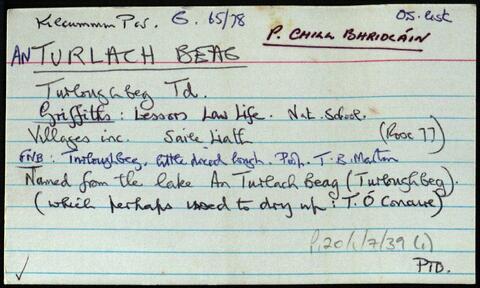 Kilcummin Par. G. 65/78 O.S. list
P. CHILL BHRIOCÁIN
AN TURLACH BEAG
Turloughbeg Td.
Griffiths: Lessors Law Life. Nat. School.
Villages inc. Saile Liath (Rose 77)
FNB: Turloughbeg, little dried lough. Prop. T. B. Martin
Named from the lake An Turlach Beag (Turloughbeg).
(which perhaps used to dry up: T. Ó Conaire)
P.20/1/7/39 (i)
PTO.